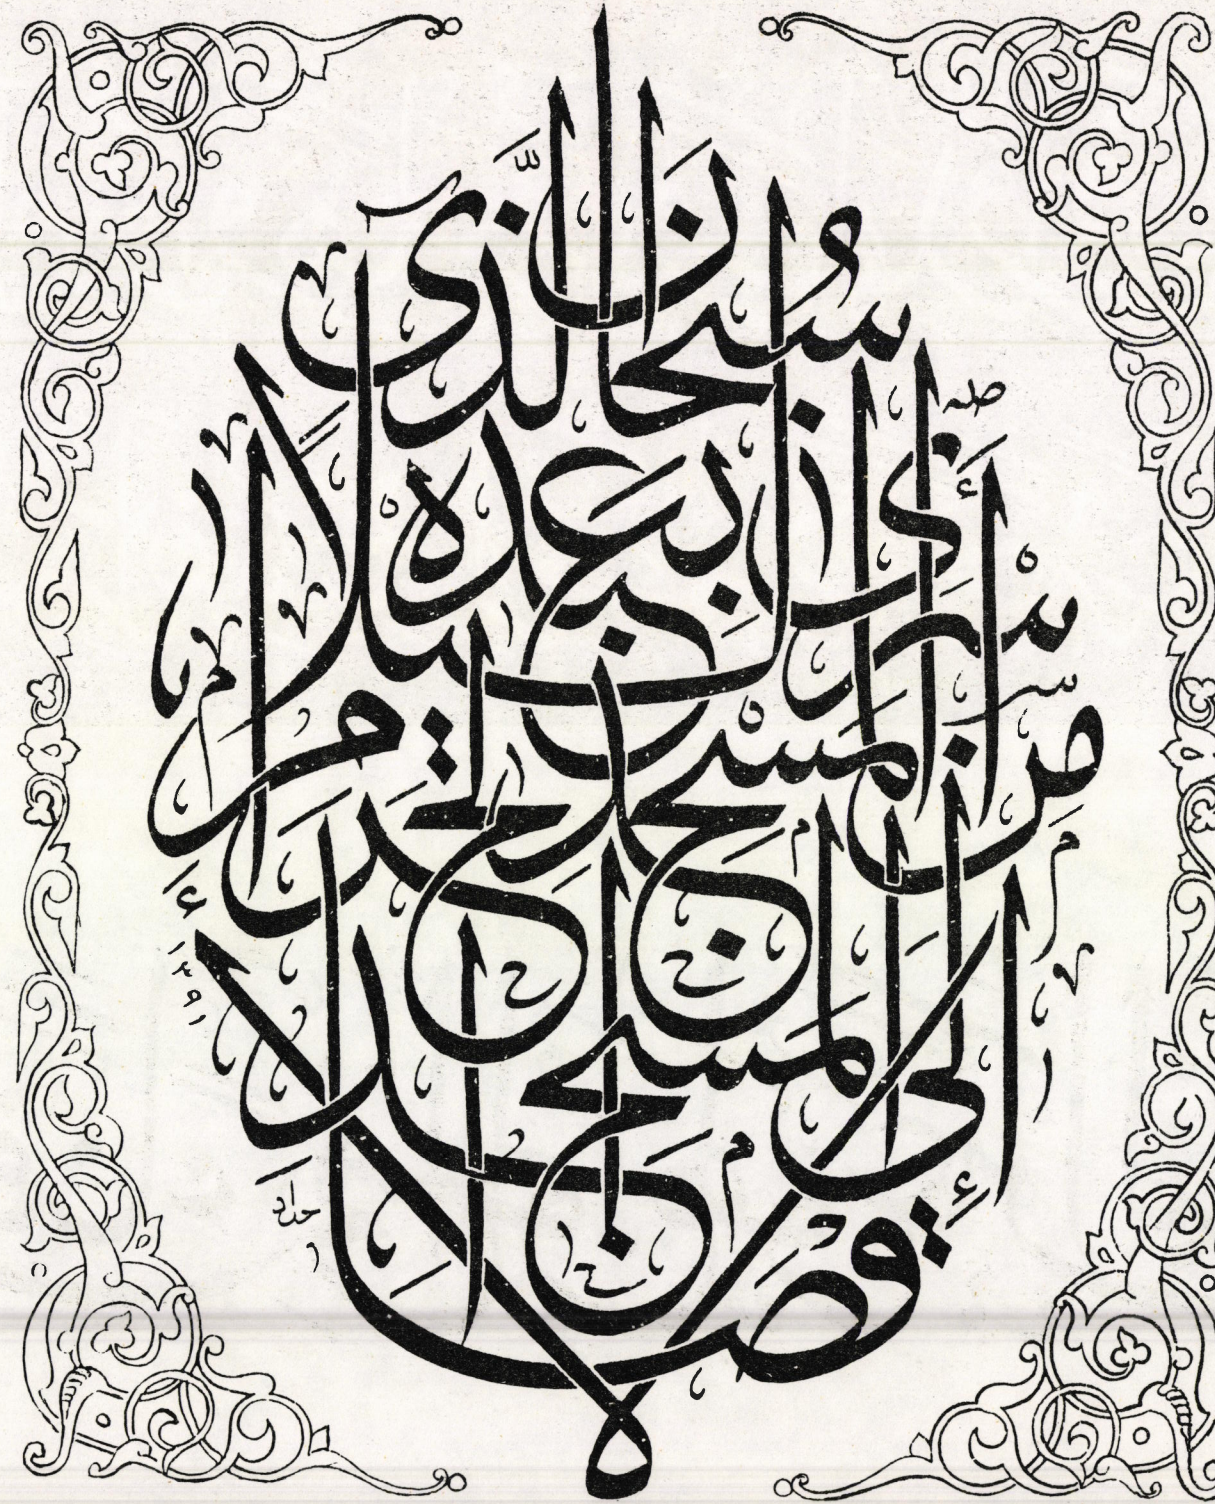 سُبْحَانَ الَّذِي
أَسْرَى بِعَبْدِهِ لَيْلًا
مِنَ الْمَسْجِدِ الْحَرَامِ
إِلَى الْمَسْجِدِ الْأَقْصَا
حداد
١٣٩١